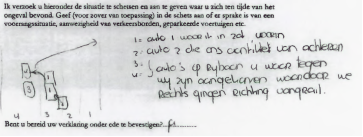 Ik verzoek u hieronder de situatie te schetsen en aan te geven waar u zich ten tijde van het
ongeval bevond. Geef (voor zover van toepassing) in de schets aan of er sprake is van een
voorrangssituatie, aanwezigheid van verkeersborden, geparkeerde voertuigen etc.
1= auto 1 waar ik in zat waarin
2= auto 2 die ons aantikt van achteren
3= } auto's op rijbaan u waar tegen
4= wij zijn aangekomen waardoor we
rechts gingen richting vangrail.
4 3 2 1
Bent u bereid uw verklaring onder ede te bevestigen?